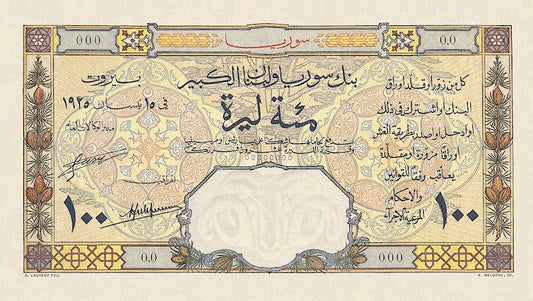 000
سوريا
0.0
بنك سوريا ولبنان الكبير
بيروت
في ١٥ نيسان ١٩٢٥
مئة ليرة
كل من زور أو قلد أوراق
البنك أو اشترك في ذلك
وادخل او اصدر بطريقة الغش
اوراقا مزورة او مقلدة
يعاقب وفقا للقوانين
والاحكام
المرعية الاجراء
المراقب
١٠٠
١٠٠
0.0
000
G. LAURENT FEC.
E. DELOCHE, SC.